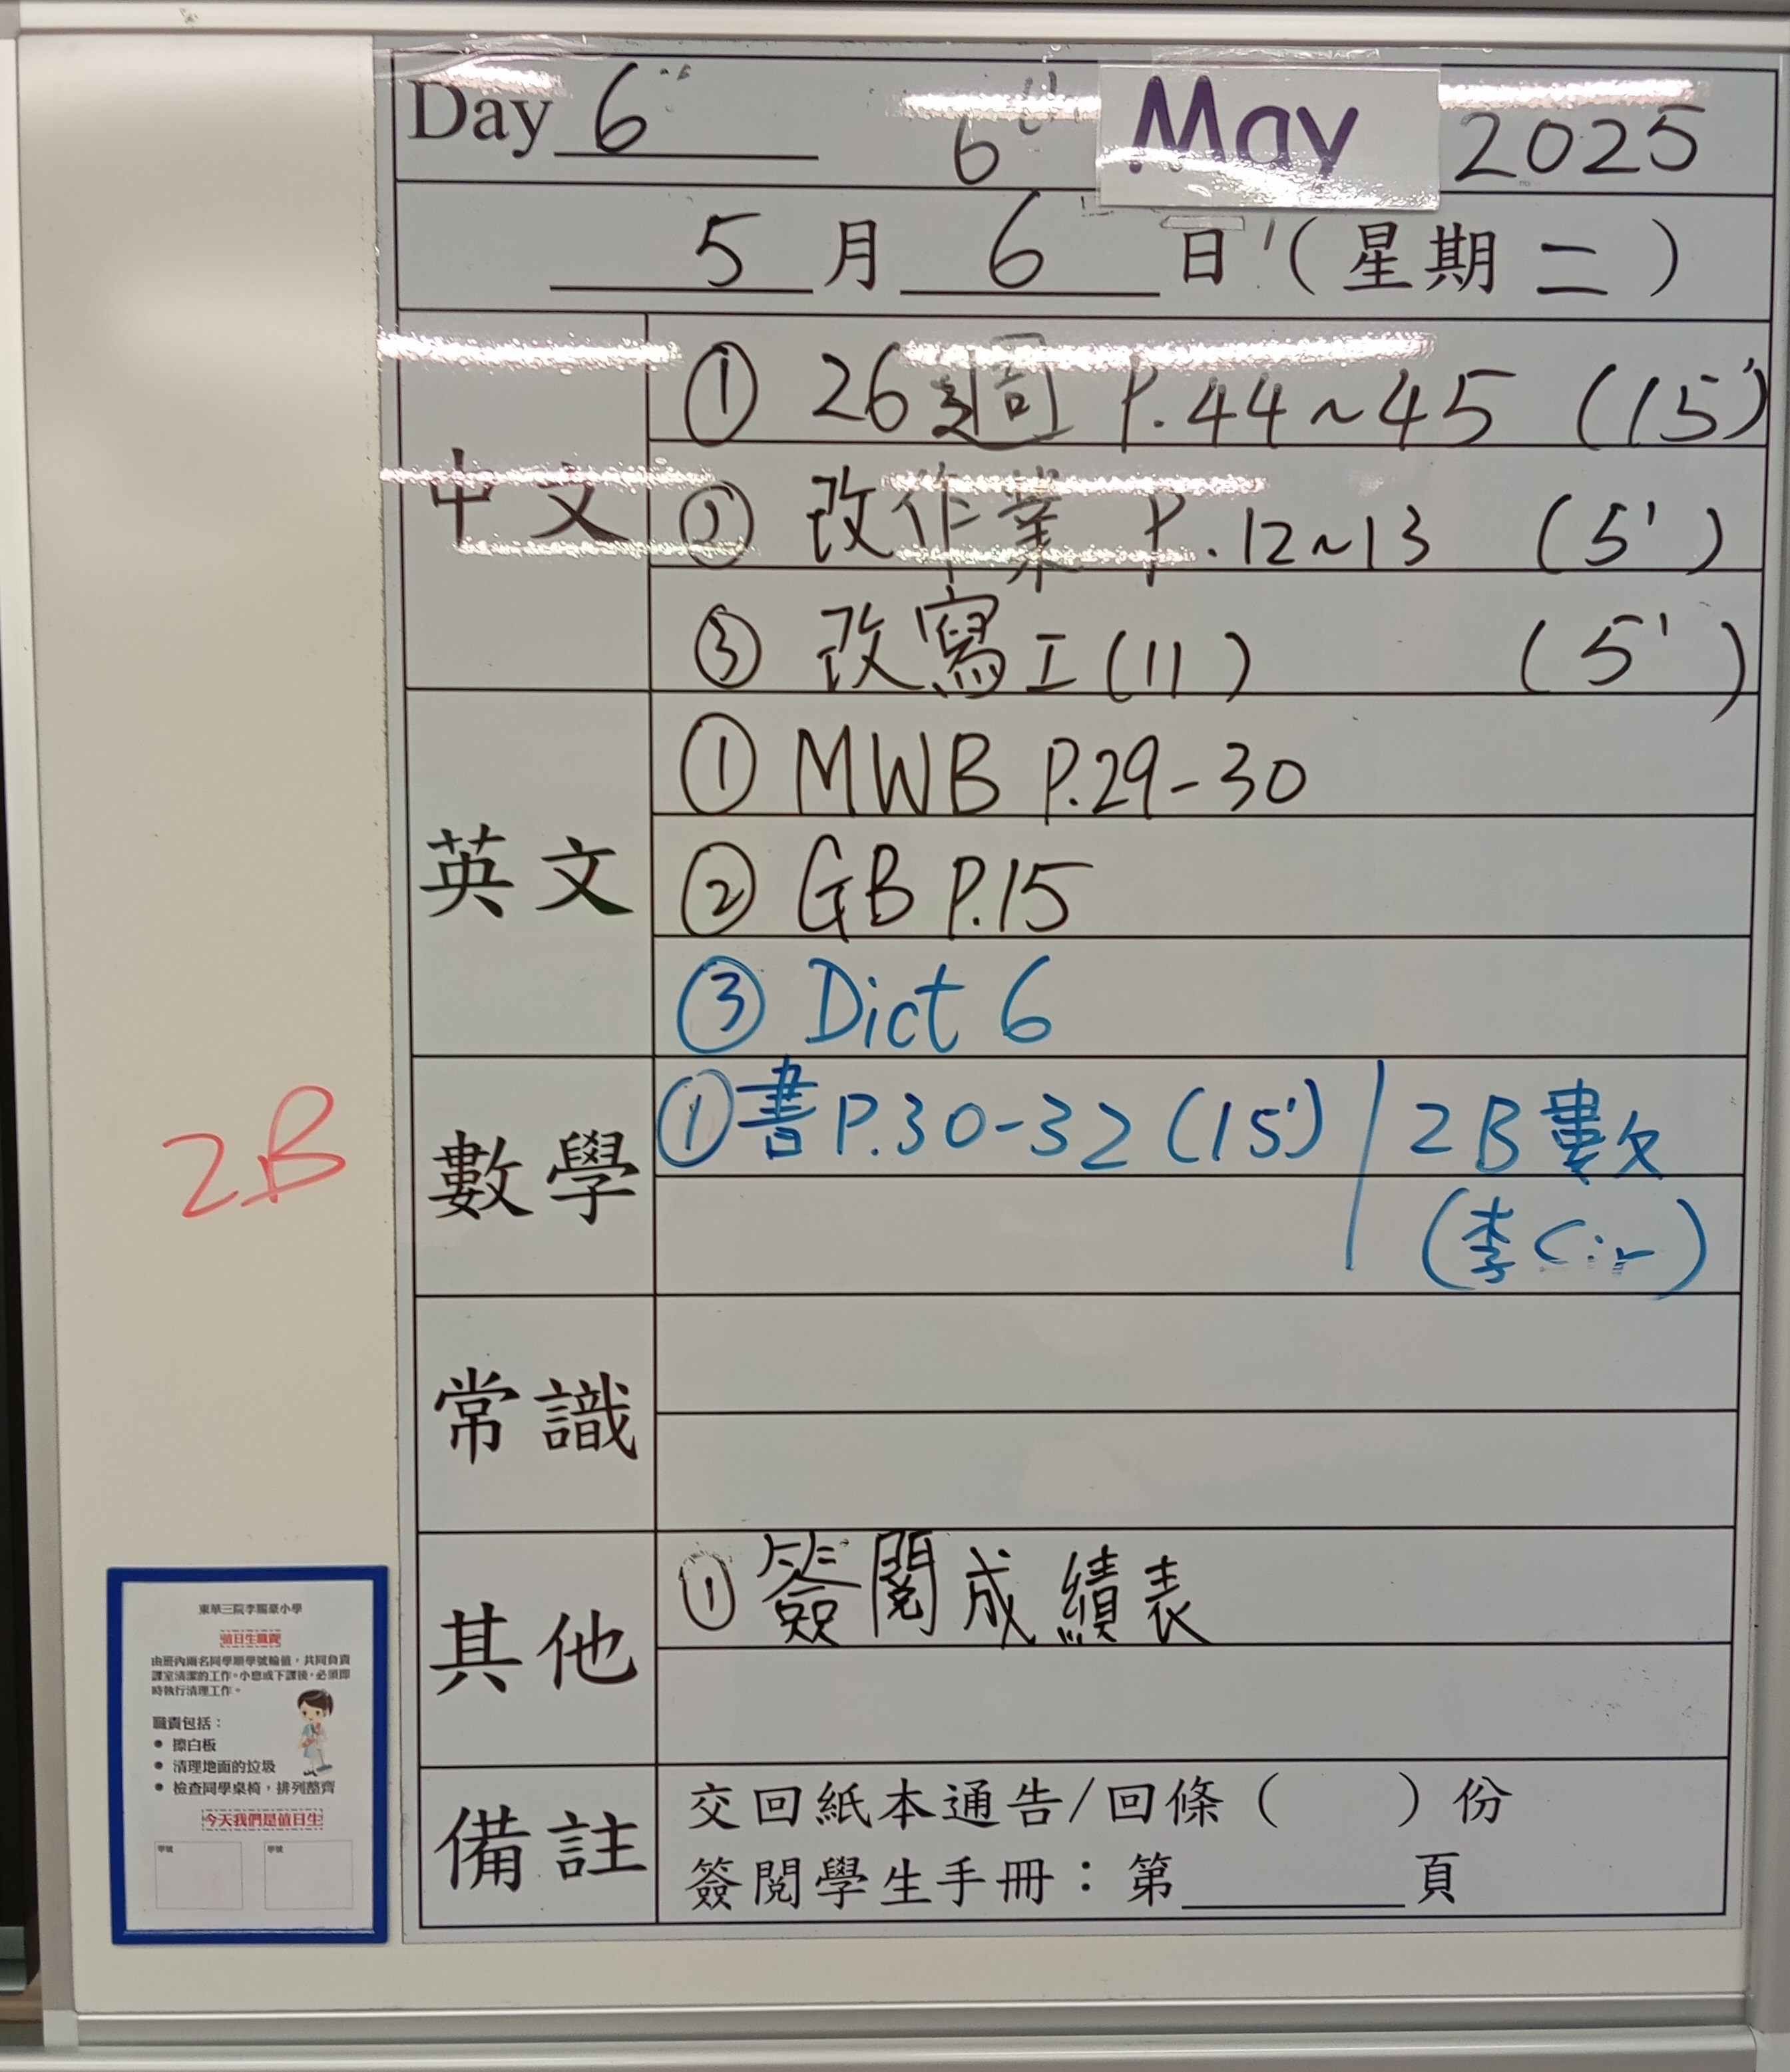 Day 6 6th May 2025
5 月 6 日 (星期二)
中文
① 26週 P.44~45 (15')
② 改作業 P.12~13 (5')
③ 改寫工(11) (5')
英文
① MWB P.29-30
② GB P.15
③ Dict 6
2B
數學
①書P.30-32 (15') 2B數
(李Sir)
常識
其他
① 簽閱成績表
備註
交回紙本通告/回條( )份
簽閱學生手冊：第 頁
東華三院李賜豪小學
值日生職責
由班內兩名同學順學號輪值，共同負責
課室清潔的工作。小息或下課後，必須即
時執行清理工作。
職責包括：
• 擦白板
• 清理地面的垃圾
• 檢查同學桌椅，排列整齊
今天我們是值日生
學號 學號